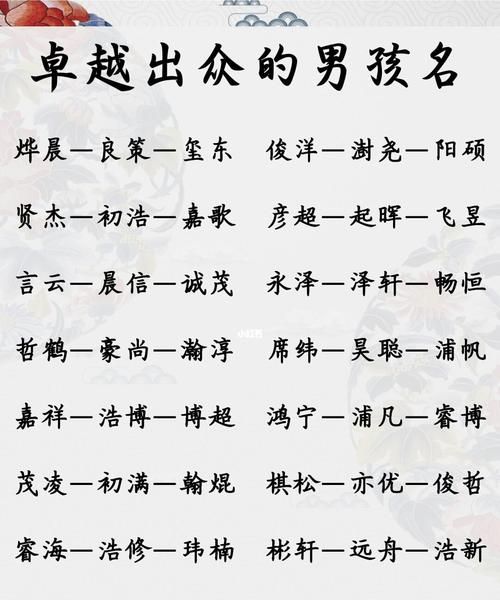 卓越出众的男孩名
烨晨—良策—玺东 俊洋—澍尧—阳硕
贤杰—初浩—嘉歌 彦超—起晖—飞昱
言云—晨信—诚茂 永泽—泽轩—畅恒
小红书
哲鹤—豪尚—瀚淳 席纬—昊聪—浦帆
嘉祥—浩博—博超 鸿宁—浦凡—睿博
茂凌—初满—翰焜 棋松—亦优—俊哲
睿海—浩修—玮楠 彬轩—远舟—浩新